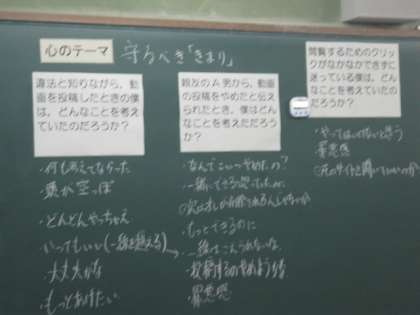 心のテーマ
守るべき「きまり」
違法と知りながら、動
画を投稿したときの僕
は、どんなことを考え
ていたのだろうか？
・何も考えてなかった
・頭が空っぽ
・どんどんやっちゃえ
いってもいい(一線を越える)
・大丈夫かな
・もっとあげたい
親友のA男から、動画
の投稿をやめたと伝え
られたとき、僕はどん
なことを考えただろう
か？
・なんでこいつやめたの？
・もっとできるのに
・一線はこえられないな
・罪悪感
閲覧するためのクリッ
クがなかなかできずに
迷っている僕は、どん
なことを考えていたの
だろうか？
・やってはいけないと思う
罪悪感